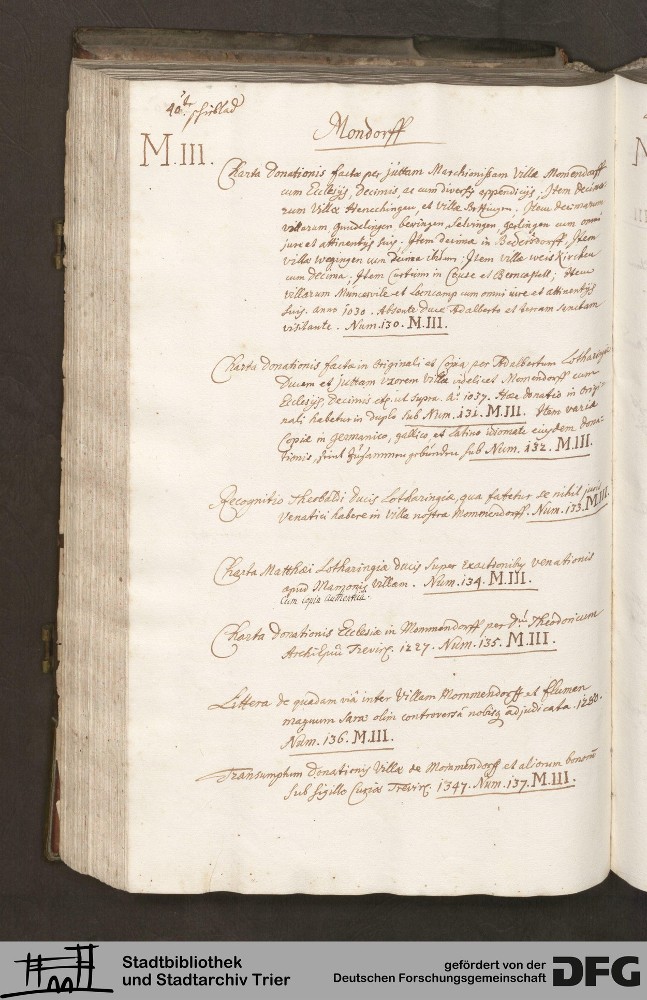 40te
schiblad
Mondorff
M.III.
Charta Donationis facta per juttam Marchionissam Villæ Momendorff
cum Ecclesijs, Decimis, ac cum diversis appendicijs. Item decima
rum Villæ Henechingen, et villæ Bettingen, Item decimarum
villarum, gundelingen, beringen, Selvingen, gerlingen cum omni
jure et attinentijs suis. Item decima in Bedersdorff, Item
villæ wegingen cum Decima ibidem. Item villæ weis Kirchen
cum decima, Item Curtium in Couse et Berncastell; Item
villarum Muncevile et Loencamp cum omni jure et attinentijs
suis. anno 1030. Absente Duce Adalberto et terram Sanctam
visitante. Num. 130. M.III.
Charta donationis facta in Originali et Copia per Adalbertum Lotharingiæ
Ducem et juttam Uxorem Villæ videlicet Momendorff cum
Ecclesijs, Decimis etc. ut supra. Aº 1037. Hæc donatio in Origi-
nali habetur in duplo sub Num. 131. M.III. Item varia
Copiæ in germanico, gallico, et latino idiomate eiusdem dona-
tionis, seint zusammen gebunden sub Num. 132. M.III.
Recognitio Theobaldi Ducis Lotharingiæ, qua fatetur se nihil juris
Venatici habere in Villa nostra Mommendorff. Num. 133. M.III.
Charta Matthæi Lotharingiæ Ducis super Exactionibus venationis
apud Villam. Num. 134. M.III.
Cum copia authentica.
Charta donationis Ecclesiæ in Mommendorff per D. Theodoricum
Archi Trevir. 1227. Num. 135. M.III.
Littera de quadam viâ inter Villam Mommendorff et flumen
magnum Sara olim controversâ nobisq adjudicata. 1280.
Num. 136. M.III.
Transumptum donationis Villæ de Mommendorff et aliorum bonorū
sub sigillo Curiæ Trevir. 1347. Num. 137. M.III.
Stadtbibliothek
und Stadtarchiv Trier
gefördert von der
Deutschen Forschungsgemeinschaft
DFG